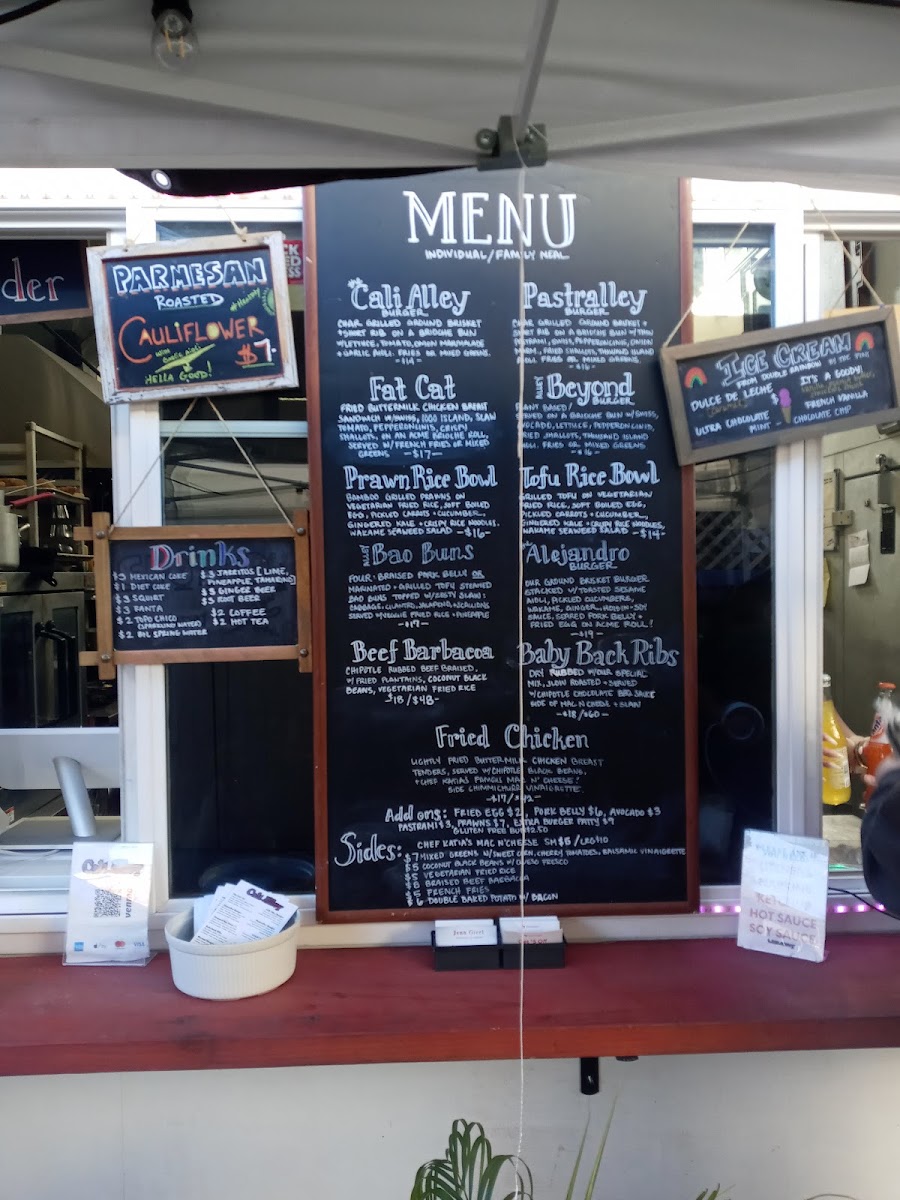 MENU
INDIVIDUAL/FAMILY MEAL
Cali Alley
BURGER
CHAR GRILLED GROUND BRISKET
+ SHORT RIB ON A BRIOCHE BUN
W/LETTUCE, TOMATO, ONION MARMALADE
+ GARLIC AIOLI. FRIES OR MIXED GREENS.
Pastralley
BURGER
CHAR GRILLED GROUND BRISKET +
SHORT RIB ON A BRIOCHE BUN W/THIN
PASTRAMI, SWISS, PEPPERONCINIS, ONION
MARM., FRIED SHALLOTS, THOUSAND ISLAND
AIOLI. FRIES OR MIXED GREENS.
-$16-
Fat Cat
FRIED BUTTERMILK CHICKEN BREAST
SANDWICH W/SWISS, 1000 ISLAND, SLAW
TOMATO, PEPPERONCINIS, CRISPY
SHALLOTS, ON AN ACME BRIOCHE ROLL,
SERVED W/FRENCH FRIES OR MIXED
GREENS -$17-
ALLEY
Beyond
BURGER
PLANT BASED!
SERVED ON A BRIOCHE BUN W/SWISS,
AVOCADO, LETTUCE, PEPPERONCINIS,
FRIED SHALLOTS, THOUSAND ISLAND
AIOLI. FRIES OR MIXED GREENS
-$16-
Prawn Rice Bowl
BAMBOO GRILLED PRAWNS ON
VEGETARIAN FRIED RICE, SOFT BOILED
EGG, PICKLED CARROTS + CUCUMBER,
GINGERED KALE + CRISPY RICE NOODLES.
WAKAME SEAWEED SALAD -$16-
Tofu Rice Bowl
GRILLED TOFU ON VEGETARIAN
FRIED RICE, SOFT BOILED EGG,
PICKLED CARROTS + CUCUMBER,
GINGERED KALE + CRISPY RICE NOODLES,
WAKAME SEAWEED SALAD -$14-
Bao Buns
FOUR: BRAISED PORK BELLY OR
MARINATED + GRILLED TOFU STEAMED
BAO BUNS TOPPED W/ZESTY SLAW:
CABBAGE, CILANTRO, JALAPENO, + SCALLIONS
SERVED W/VEGGIE FRIED RICE + PINEAPPLE
-$17-
Alejandro
BURGER
OUR GROUND BRISKET BURGER
STACKED W/TOASTED SESAME
AIOLI, PICKLED CUCUMBERS,
WAKAME, GINGER, HOISIN-SOY
SAUCE, SEARED PORK BELLY +
FRIED EGG ON ACME ROLL!
-$19-
Beef Barbacoa
CHIPOTLE RUBBED BEEF BRAISED,
W/FRIED PLANTAINS, COCONUT BLACK
BEANS, VEGETARIAN FRIED RICE
$18/$48-
Baby Back Ribs
DRY RUBBED W/OUR SPECIAL
MIX, SLOW ROASTED + SERVED
W/CHIPOTLE CHOCOLATE BBQ SAUCE
SIDE OF MAC N CHEESE + SLAW
-$18/$60-
Fried Chicken
LIGHTLY FRIED BUTTERMILK CHICKEN BREAST
TENDERS, SERVED W/CHIPOTLE BLACK BEANS,
+ CHEF KATIA'S FAMOUS MAC N' CHEESE!
SIDE CHIMMICHURRI VINAIGRETTE
Add ons: FRIED EGG $2, PORK BELLY $6, AVOCADO $3
PASTRAMI $3, PRAWNS $7, EXTRA BURGER PATTY $9
GLUTEN FREE BUN $2.50
Sides: CHEF KATIA'S MAC N'CHEESE SM $5/LRG $10
$7 MIXED GREENS W/SWEET CORN, CHERRY TOMATOES, BALSAMIC VINAIGRETTE
$5 COCONUT BLACK BEANS W/QUESO FRESCO
$5 VEGETARIAN FRIED RICE
$8 BRAISED BEEF BARBACOA
$5 FRENCH FRIES
$6 DOUBLE BAKED POTATO W/BACON
der
PARMESAN
ROASTED
CAULIFLOWER
WITH GARLIC AIOLI
$7.
HELLA GOOD!
Drinks
$3 MEXICAN COKE
$1 DIET COKE
$3 SQUIRT
$3 FANTA
$2 TOPO CHICO
(SPARKLING WATER)
$2 BTL SPRING WATER
$3 JARRITOS [LIME,
PINEAPPLE, TAMARIND]
$3 GINGER BEER
$3 ROOT BEER
$2 COFFEE
$2 HOT TEA
ICE CREAM
FROM DOUBLE RAINBOW
BY THE PINT
DULCE DE LECHE
ULTRA CHOCOLATE
IT'S A GOODY!
FRENCH VANILLA
MINT - CHOCOLATE CHIP
venmo
VISA
HOT SAUCE
SOY SAUCE